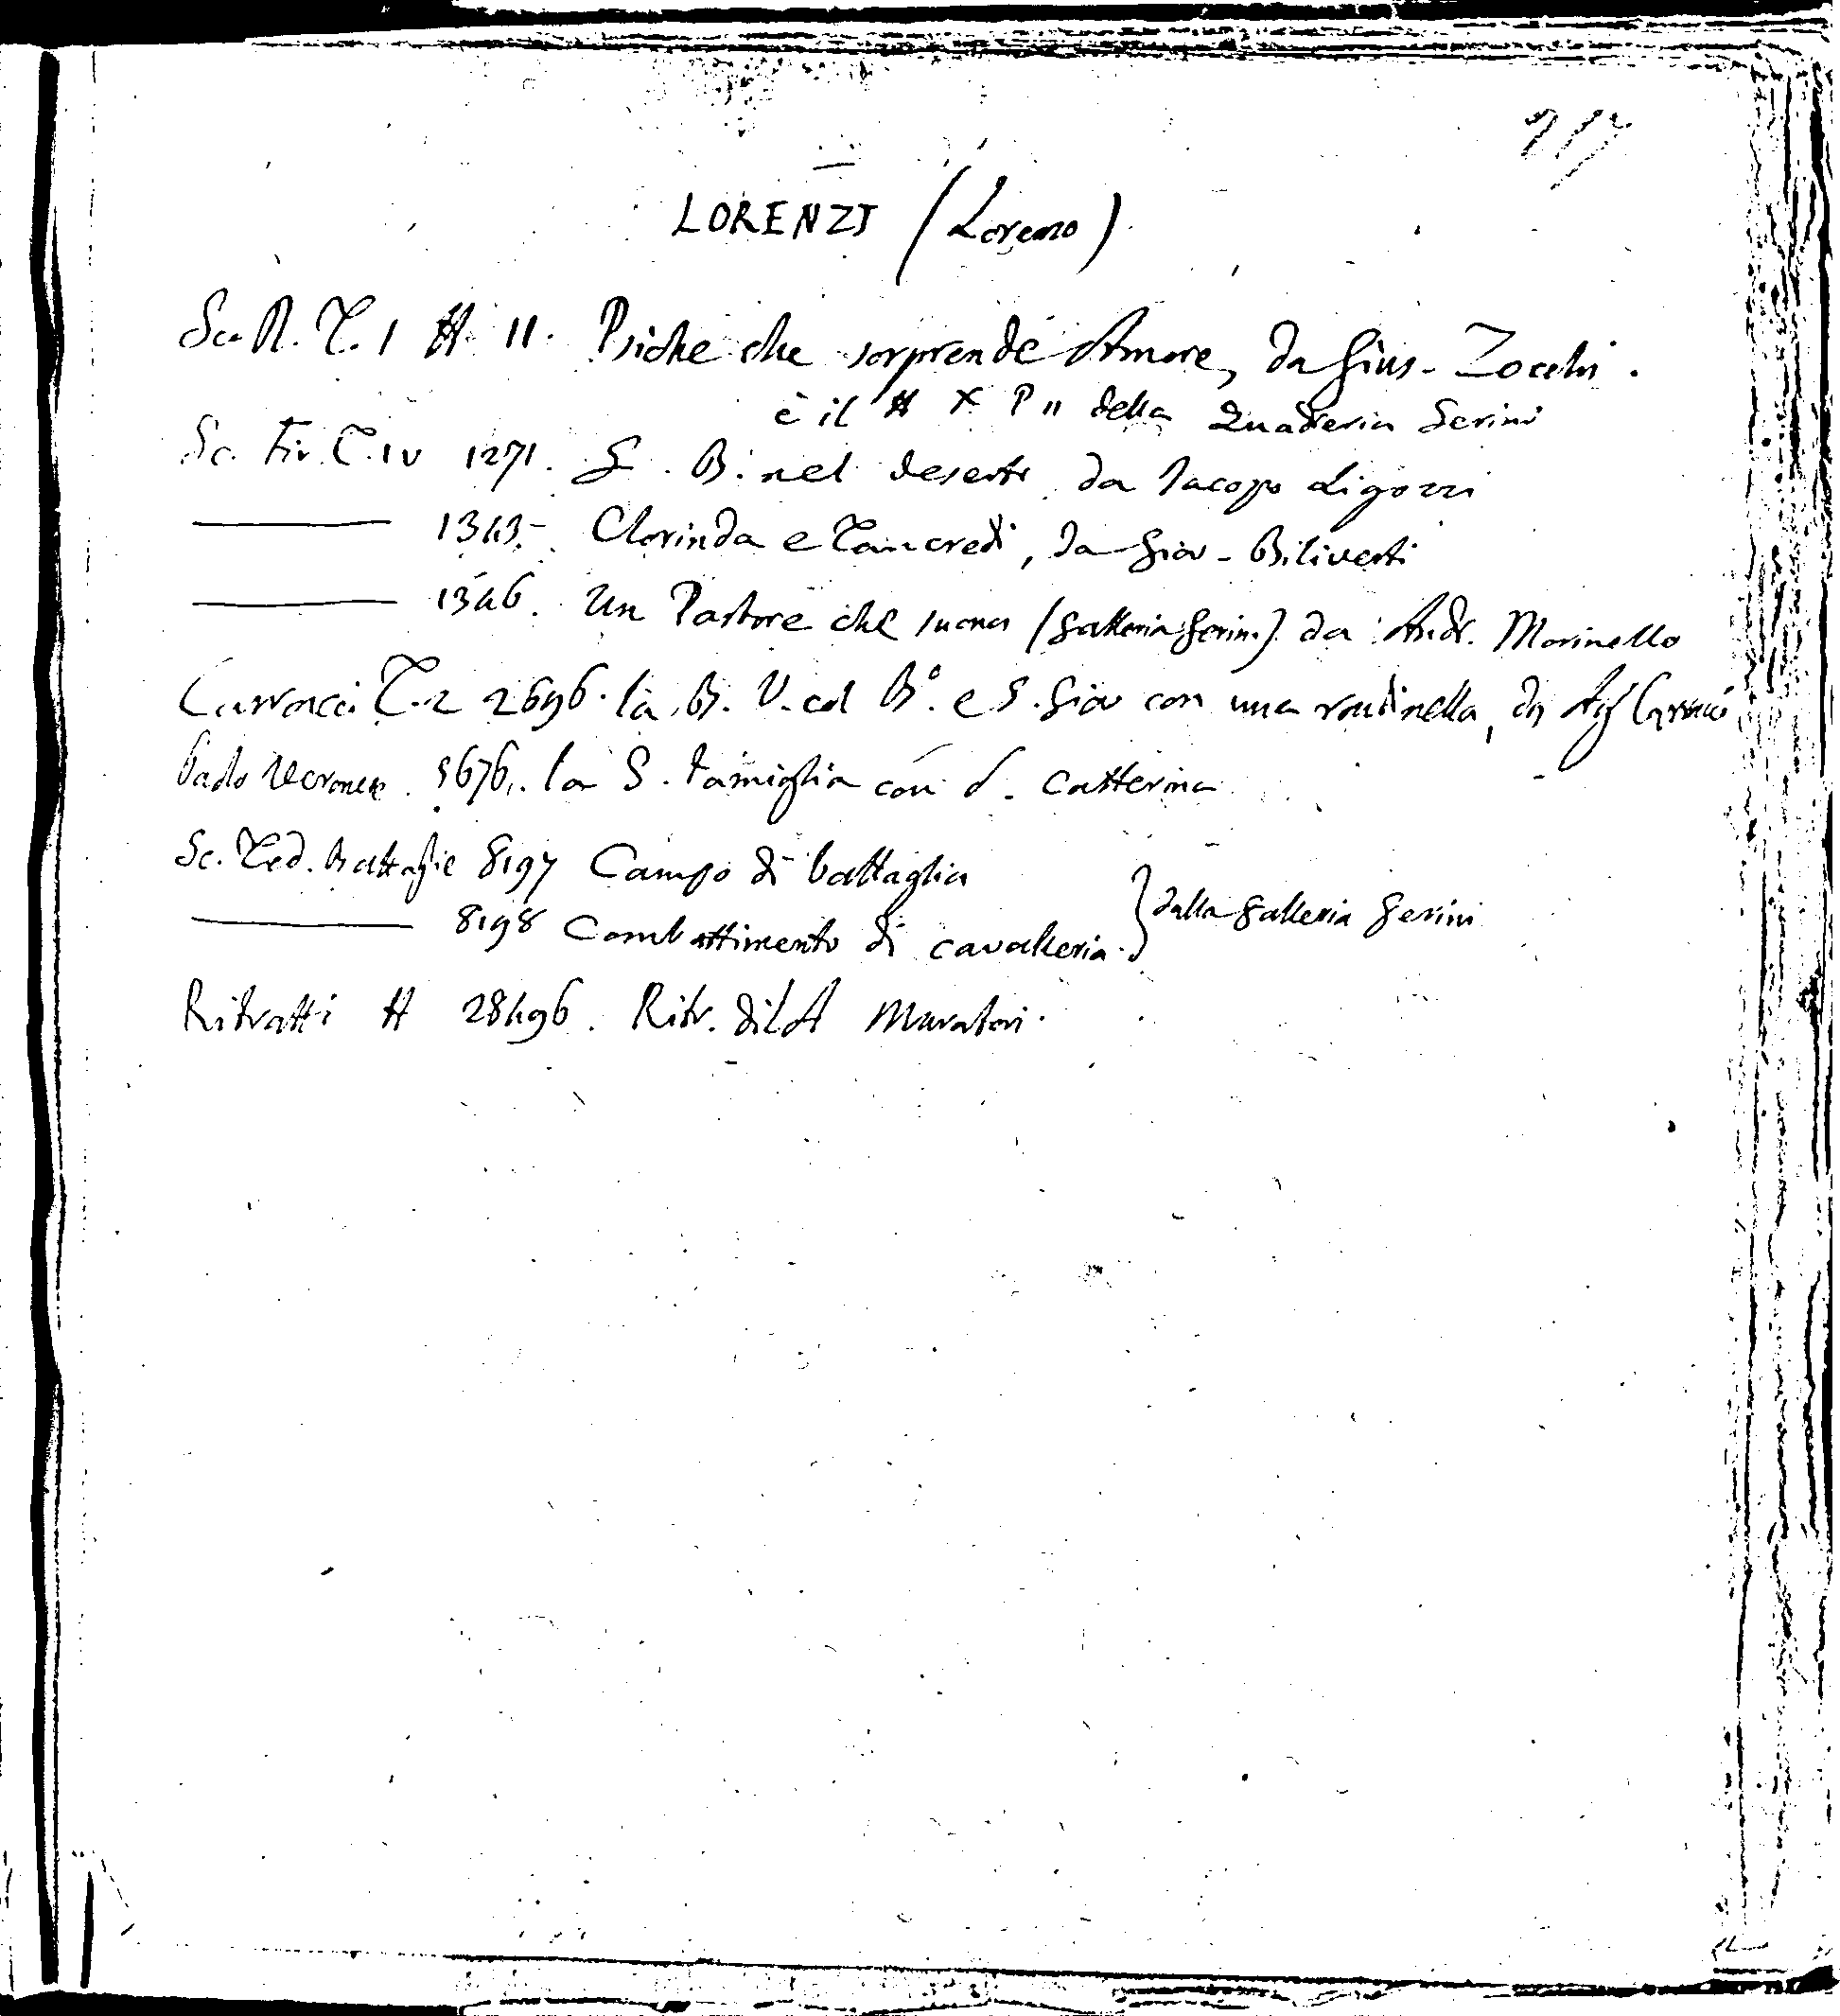 217
LORENZI (Lorenzo)
Sc. R. T. I # 11. Psiche che sorprende Amore, da Gius. Zocchi.
è il # X P II della Quadreria Gerini
Sc. Fir. T. IV 1271. S. B. nel deserto da Iacopo Ligozzi
——— 1343. Clorinda e Tancredi, da Giov. Biliverti
——— 1346. Un Pastore che suona (Galleria Gerini) da Andr. Morinello
Carracci T. 2 2696. la B. V. col B.º e S. Giov con una rondinella, da Carracci
Paolo Veronese. 5676. la S. Famiglia con S. Catterina
Sc. Ted. Battaglie 8197 Campo di battaglia
——— 8198 Combattimento di cavalleria. } dalla Galleria Gerini
Ritratti # 28496. Ritr. di Muratori.